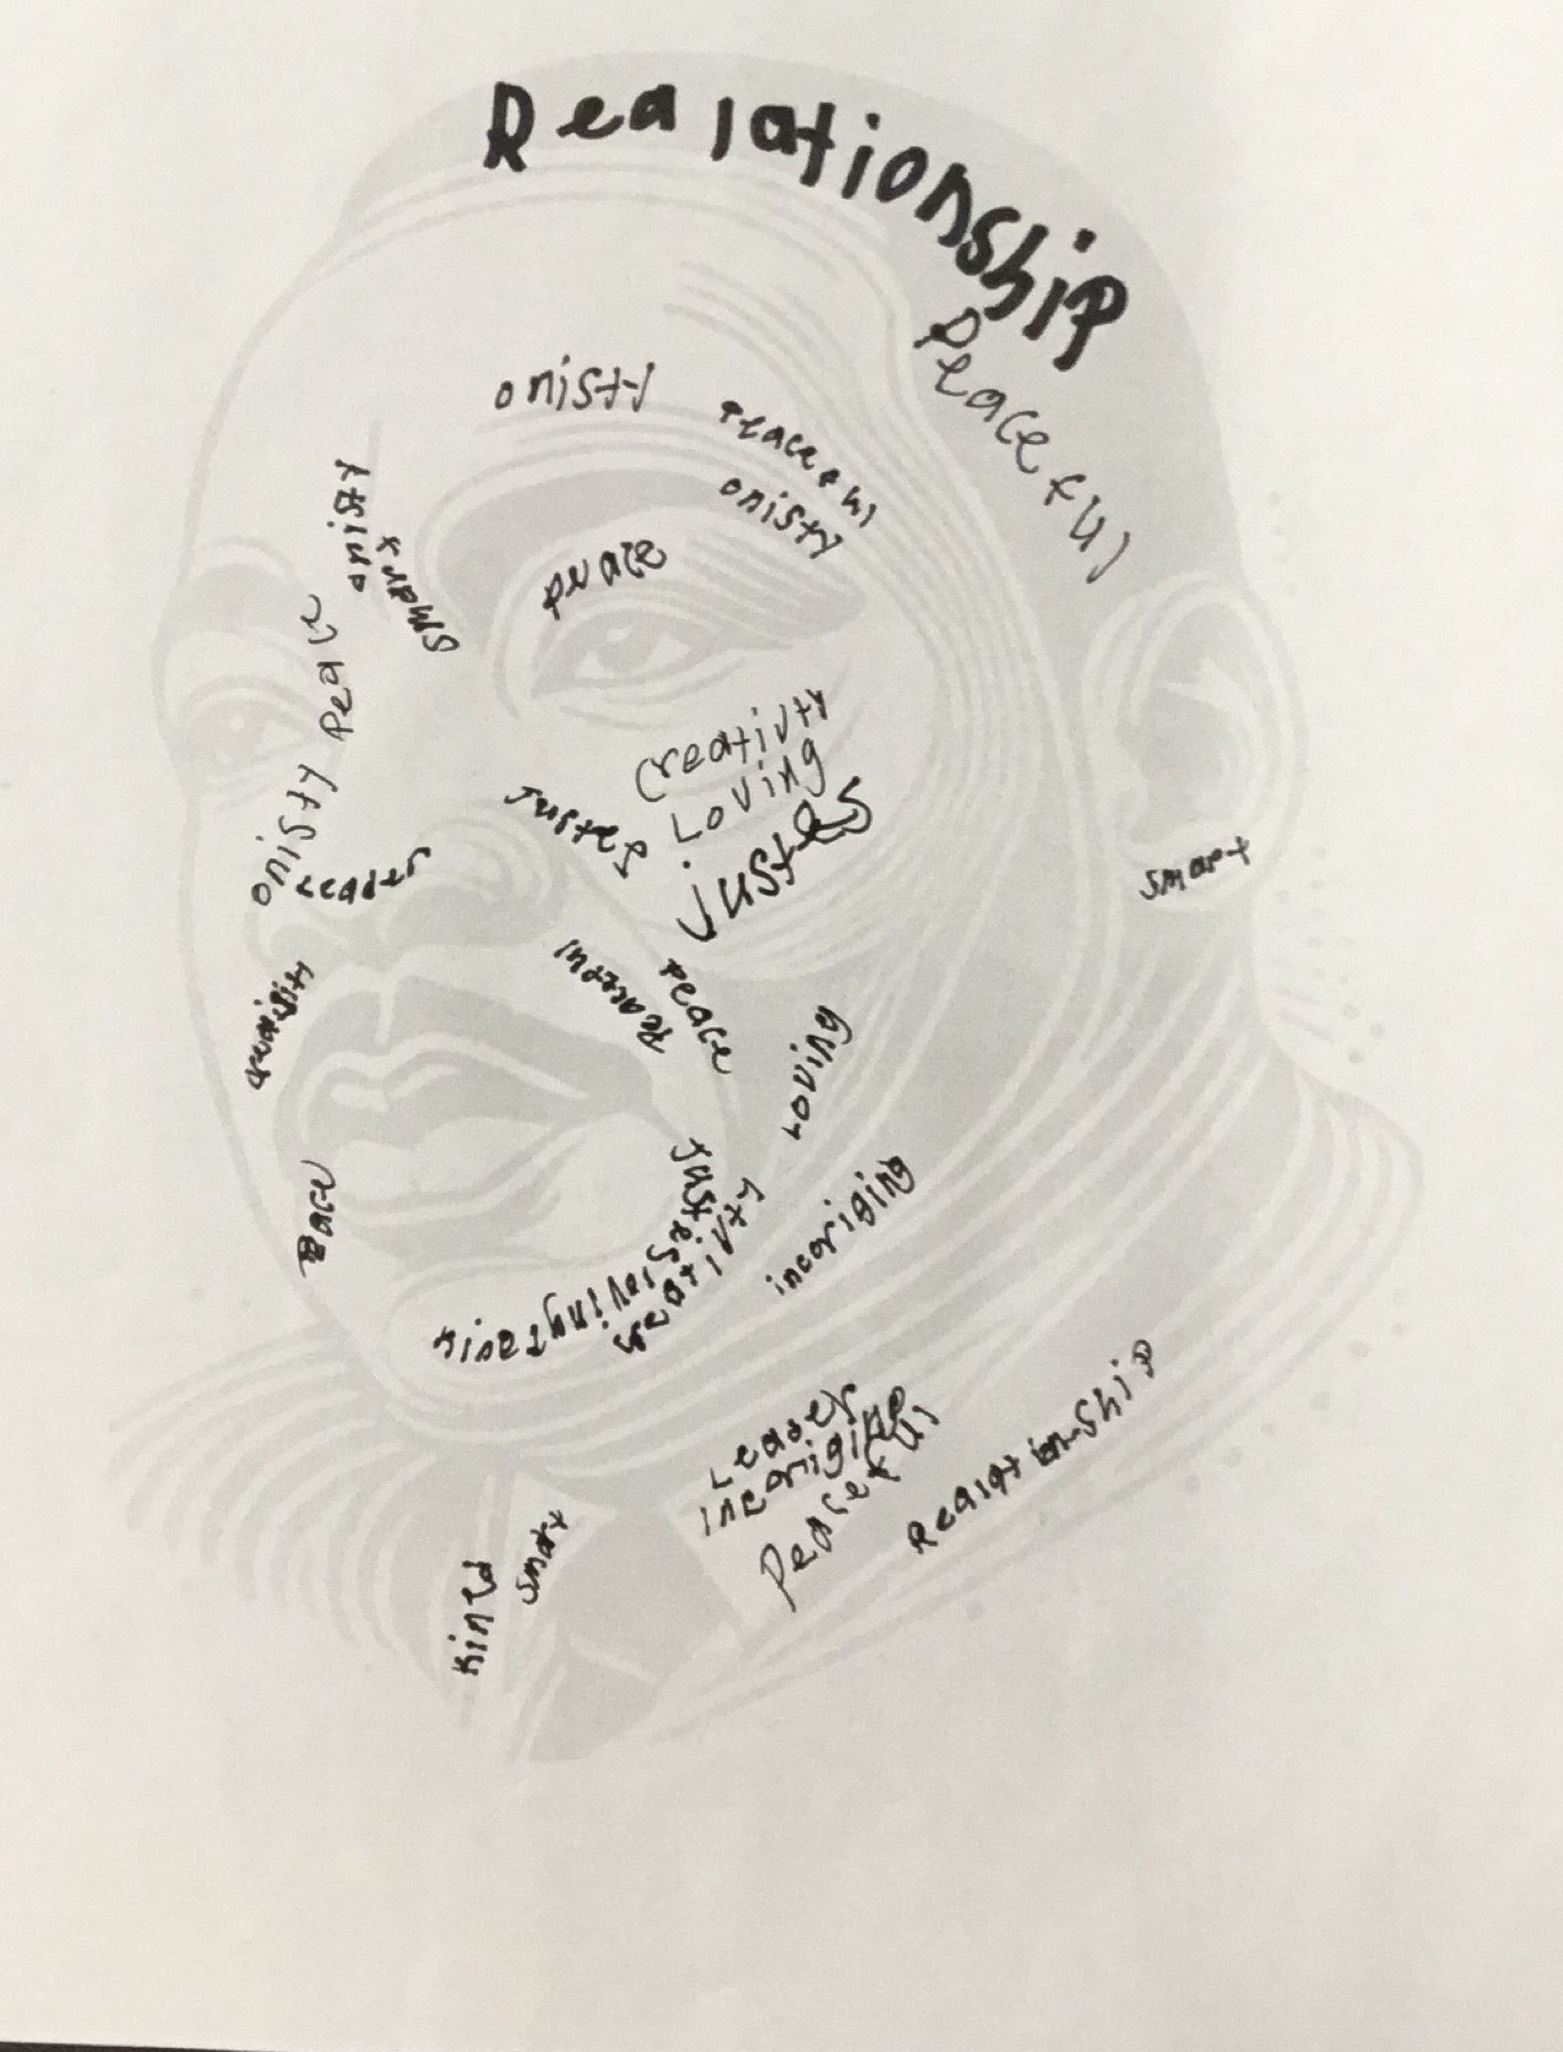 Realationship
Peaceful
onisty
Peaceful
onisty
onisty
smart
peace
Peace
creativty
Loving
onisty
Justes
Justes
Leader
smart
Peaceful
peace
Loving
Justes
incoriging
loving
creativty
Leader
incoriging
Peaceful
Realationship
smart